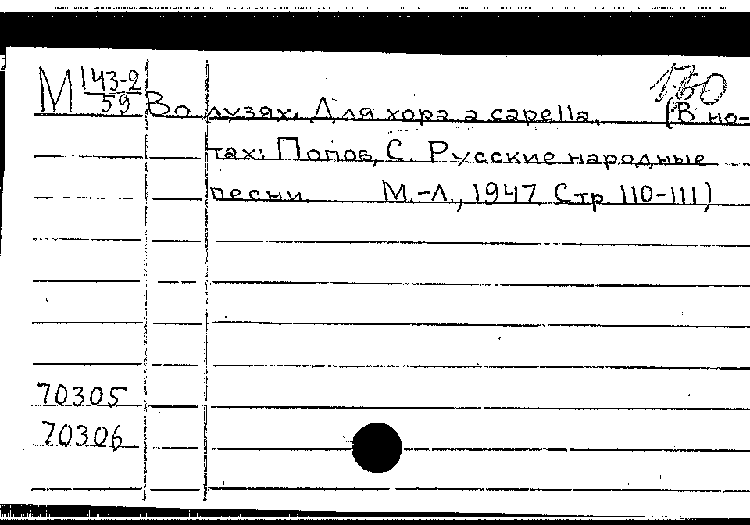 1760
М 143-2
59
Во лузях. Для хора a capella. (В но-
тах: Попов, С. Русские народные
песни. М.-Л., 1947. Стр. 110-111)
70305
70306